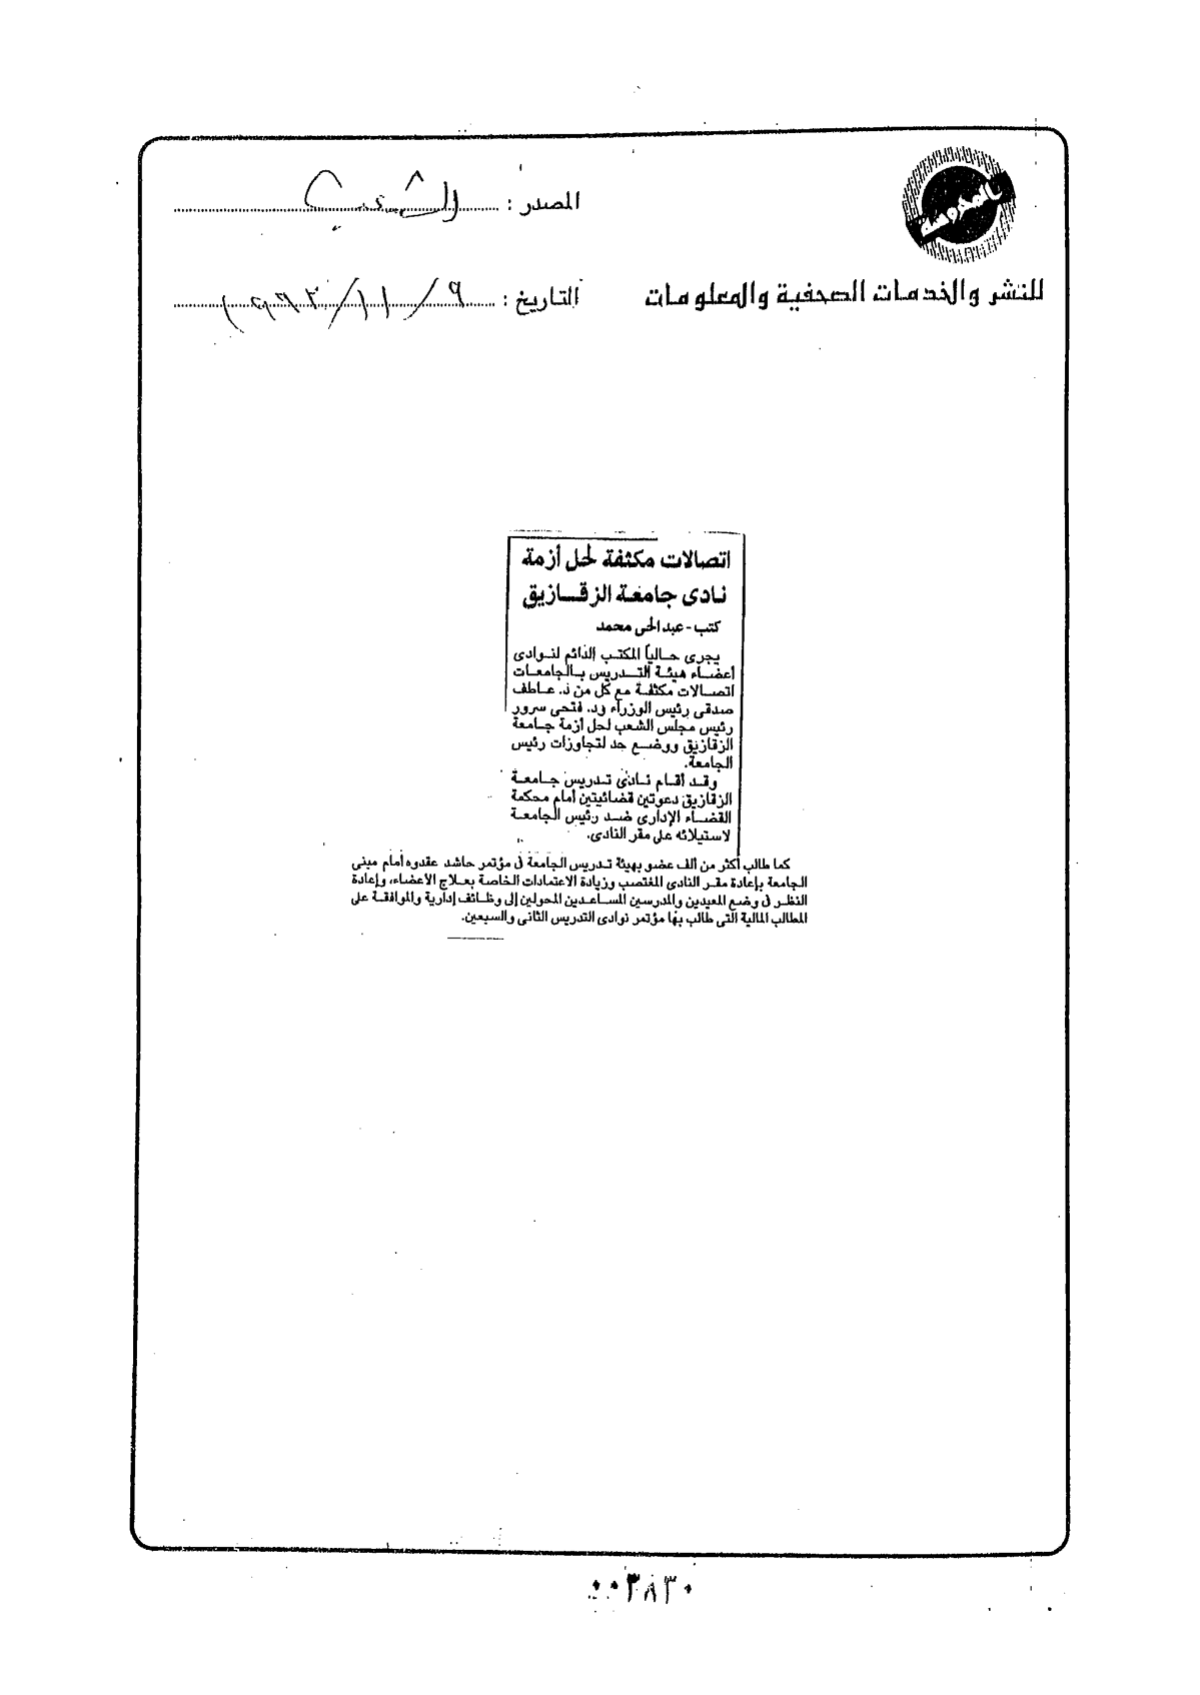 المصدر : الشعب
للنشر والخدمات الصحفية والمعلومات
التاريخ : ٩ / ١١ / ١٩٩٣
اتصالات مكثفة لحل أزمة
نادى جامعة الزقــازيق
كتب - عبدالحى محمد
يجرى حـاليا المكتب الدائم لنـوادى
أعضـاء هيئـة التـدريس بـالجامعـات
اتصـالات مكثفـة مع كل من د. عـاطف
صدقى رئيس الوزراء ود. فتحى سرور
رئيس مجلس الشعب لحل أزمة جـامعة
الزقازيق ووضـع حد لتجاوزات رئيس
الجامعة.
وقـد أقـام نـادى تـدريس جـامعـة
الزقازيق دعوتين قضائيتين أمام محكمة
القضـاء الإدارى ضـد رئيس الجامعـة
لاستيلائه على مقر النادى.
كما طالب أكثر من ألف عضو بهيئة تـدريس الجامعة فى مؤتمر حاشد عقدوه أمام مبنى
الجامعة بإعادة مقـر النادى المغتصب وزيادة الاعتمادات الخاصة بعـلاج الأعضاء، وإعادة
النظـر فى وضع المعيدين والمدرسين المساعـدين المحولين إلى وظـائف إدارية والموافقـة على
المطالب المالية التى طالب بها مؤتمر نوادى التدريس الثانى والسبعين.
٠٠٣٨٣٠